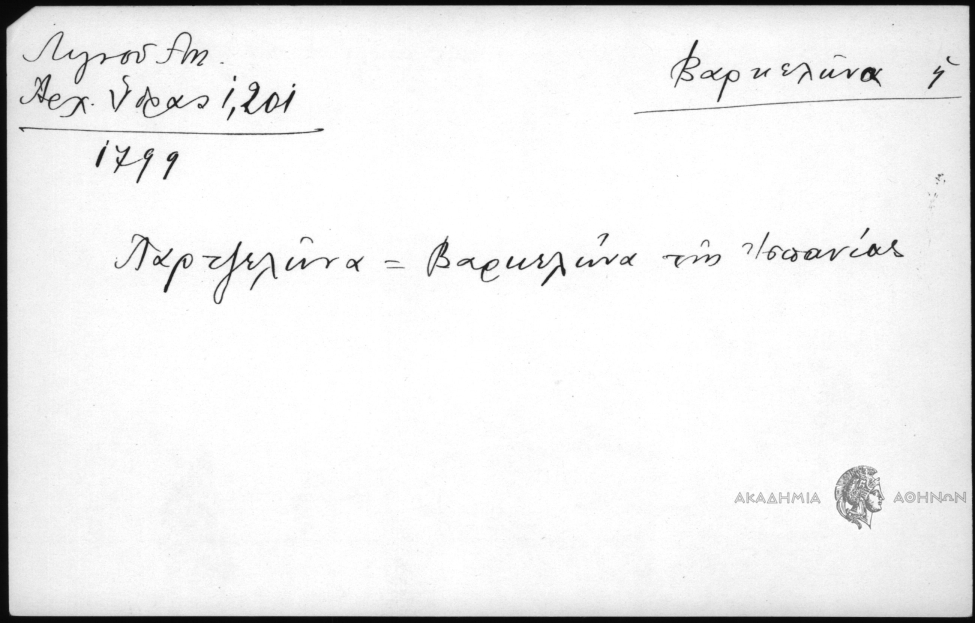 Λιγνοῦ Ἀντ.
Ἀρχ. Ὕδρας 1,201
1799
Βαρκελῶνα ἡ
Παρτζελῶνα = Βαρκελῶνα τῆς Ἱσπανίας
ΑΚΑΔΗΜΙΑ ΑΘΗΝΩΝ